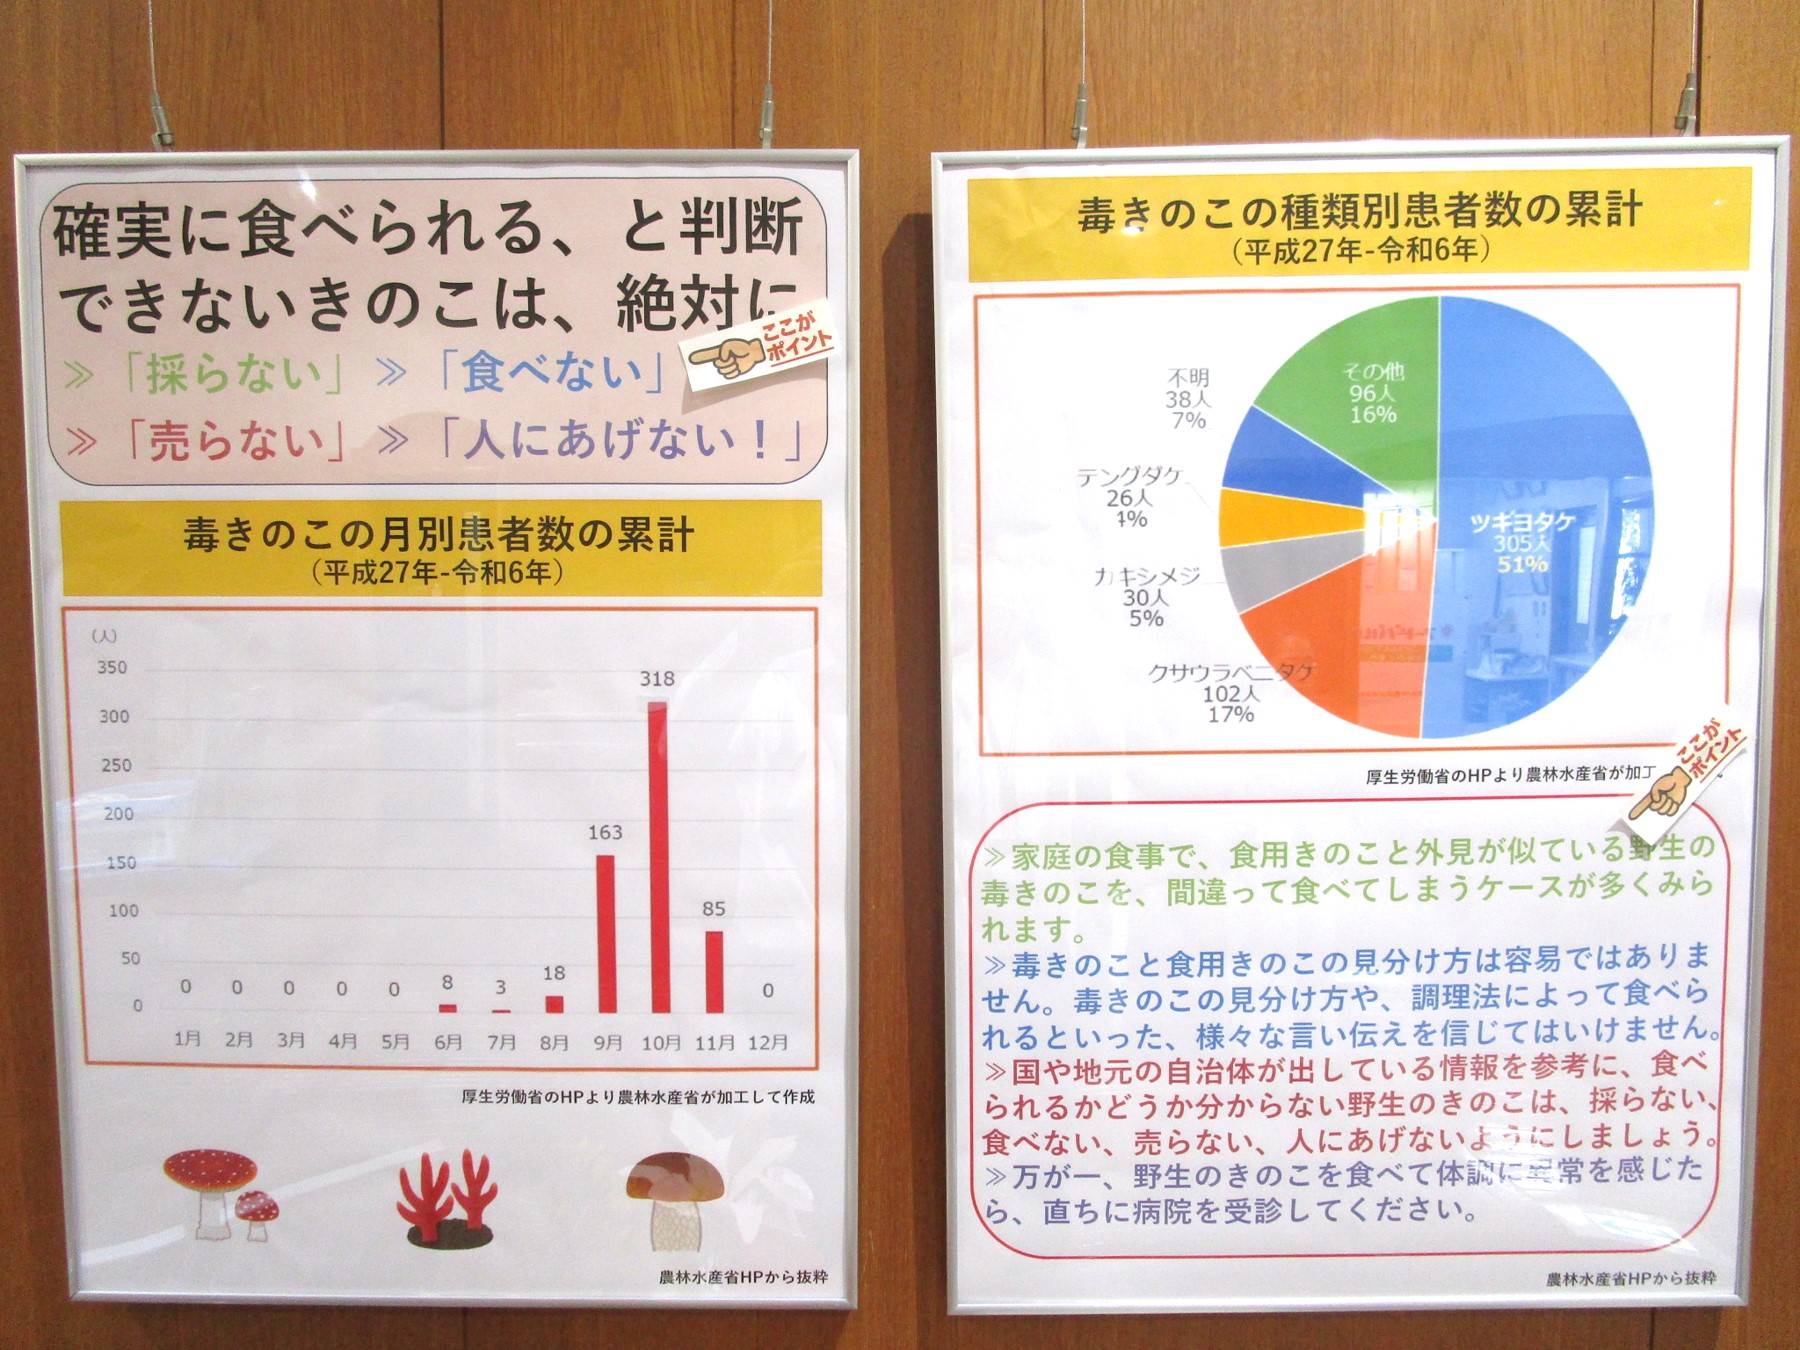 確実に食べられる、と判断
できないきのこは、絶対に
≫「採らない」≫「食べない」
ここが
ポイント
≫「売らない」≫「人にあげない！」
毒きのこの月別患者数の累計
（平成27年-令和6年）
（人）
350
300
250
200
150
100
50
0
0 0 0 0 0 8 3 18 163 318 85 0
1月 2月 3月 4月 5月 6月 7月 8月 9月 10月 11月 12月
厚生労働省のHPより農林水産省が加工して作成
農林水産省HPから抜粋
毒きのこの種類別患者数の累計
（平成27年-令和6年）
その他
96人
16%
不明
38人
7%
テングダケ
26人
4%
カキシメジ
30人
5%
クサウラベニタケ
102人
17%
ツキヨタケ
305人
51%
厚生労働省のHPより農林水産省が加工
ここが
ポイント
≫家庭の食事で、食用きのこと外見が似ている野生の
毒きのこを、間違って食べてしまうケースが多くみら
れます。
≫毒きのこと食用きのこの見分け方は容易ではありま
せん。毒きのこの見分け方や、調理法によって食べら
れるといった、様々な言い伝えを信じてはいけません。
≫国や地元の自治体が出している情報を参考に、食べ
られるかどうか分からない野生のきのこは、採らない、
食べない、売らない、人にあげないようにしましょう。
≫万が一、野生のきのこを食べて体調に異常を感じた
ら、直ちに病院を受診してください。
農林水産省HPから抜粋